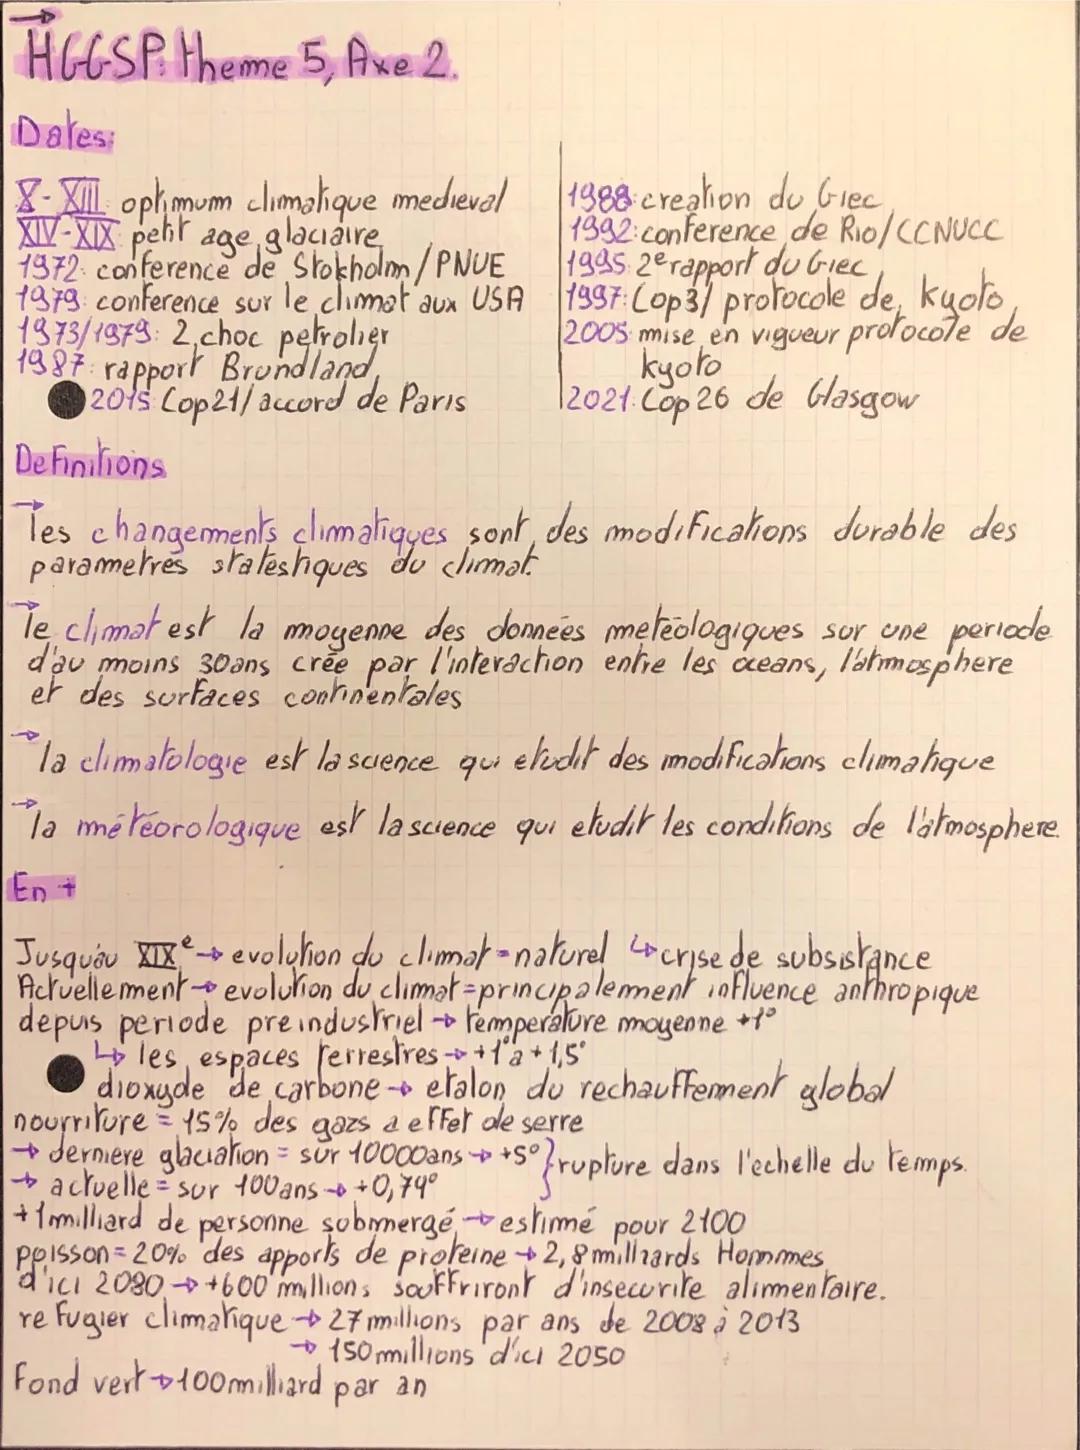 HGGSP: theme 5, Axe 2.
Dates:
X-XIII: optimum climatique medieval
XIV-XIX petit age glaciaire
1972: conference de Stokholm/PNUE
1979: conference sur le climat aux USA
1973/1979: 2 choc petrolier
1987: rapport Brundland
2015: Cop21/accord de Paris
1988: creation du Giec
1992: conference de Rio/CCNUCC
1995: 2e rapport du Giec
1997: Cop3/ protocole de kyoto
2005: mise en vigueur protocole de
kyoto
2021: Cop 26 de Glasgow
Definitions
→ les changements climatiques sont des modifications durable des
parametres statestiques du climat.
→ le climat est la moyenne des données meteologiques sur une periode
d'au moins 30ans crée par l'interaction entre les oceans, l'atmosphere
et des surfaces continentales
→ la climatologie est la science qui etudit des modifications climatique
→ la météorologique est la science qui etudit les conditions de l'atmosphere.
En +
Jusqu'au XIXe → evolution du climat = naturel ↳ crise de subsistance
Actuellement → evolution du climat = principalement influence anthropique
depuis periode preindustriel → temperature moyenne +1°
↳ les espaces terrestres → +1° à +1,5°
dioxyde de carbone → etalon du rechauffement global
nourriture = 15% des gazs a effet de serre
→ derniere glaciation = sur 10000ans → +5° } rupture dans l'echelle du temps.
→ actuelle = sur 100ans → +0,74°
+1milliard de personne submergé → estimé pour 2100
poisson = 20% des apports de proteine → 2,8 milliards Hommes
d'ici 2080 → +600 millions souffriront d'insecurite alimentaire.
refugier climatique → 27 millions par ans de 2008 à 2013
→ 150 millions d'ici 2050
Fond vert → 100milliard par an